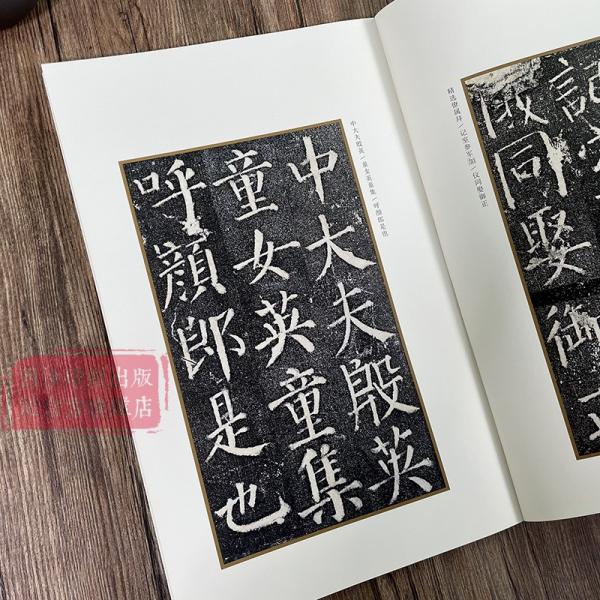 精选僚属拜/记室参军加/仪同娶御正
同娶御
中大夫殷英/童女英童集/呼颜郎是也
中大夫殷英
童女英童集
呼顏郎是也
出版
店